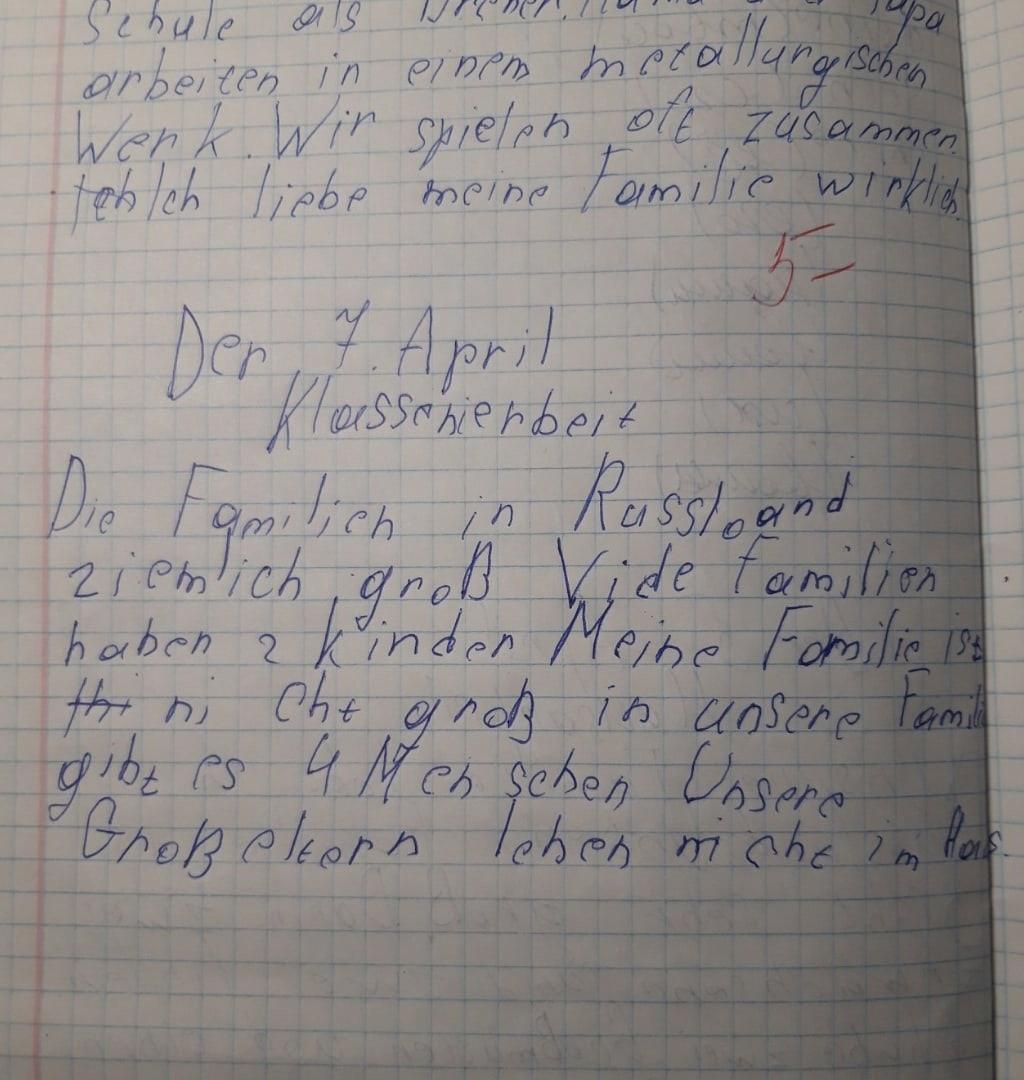 Schule als Dreher. Mama und Papa
arbeiten in einem metallurgischen
Werk. Wir spielen oft zusammen.
Ich liebe meine Familie wirklich.
5-
Der 7. April
Klassenerbeit
Die Familien in Russland
ziemlich groß Viele Familien
haben 2 Kinder Meine Familie ist
ni cht groß in unsere Famili
gibt es 4 Men schen Unsere
Großeltern leben nicht im Haus.